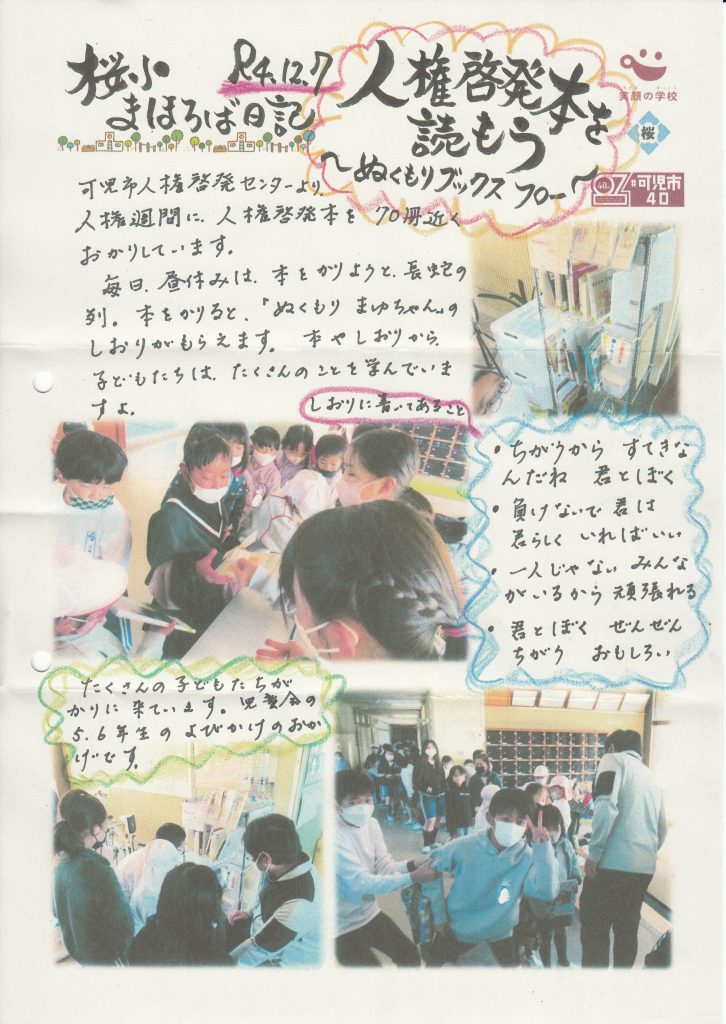 桜小
まほろば日記
R4.12.7
人権啓発本を
読もう
～ぬくもりブックス フロー～
笑顔の学校
桜
#可児市
40
可児市人権啓発センターより、
人権週間に、人権啓発本を 70冊近く
おかりしています。
毎日、昼休みは、本をかりようと、長蛇の
列。本をかりると、「ぬくもり まゆちゃん」の
しおりがもらえます。 本やしおりから、
子どもたちは、たくさんのことを学んでいま
すよ。
しおりに書いてあること
・ちがうから すてきな
んだね 君とぼく
・負けないで 君は
君らしく いればいい
・一人じゃない みんな
がいるから 頑張れる
・君とぼく ぜんぜん
ちがう おもしろい
たくさんの子どもたちが
かりに来ています。児童会の
5.6年生のよびかけのおか
げです。